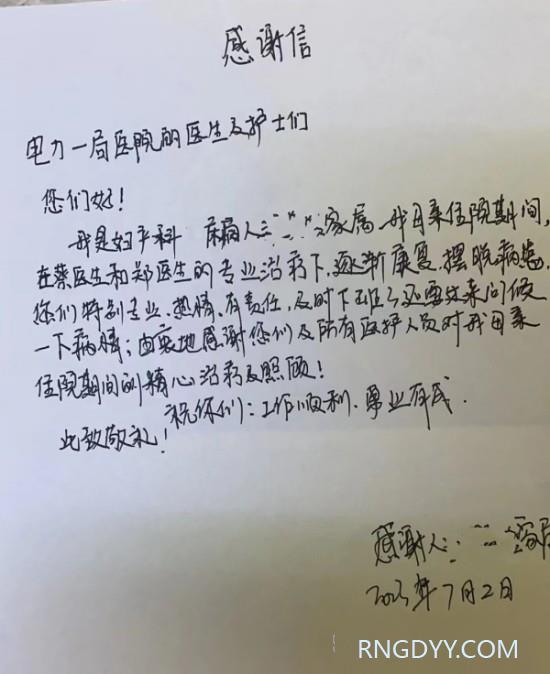 感谢信
电力一局医院的医生及护士们
您们好!
我是妇产科 病人 家属,我母亲住院期间,
在蔡医生和郑医生的专业治疗下,逐渐康复,摆脱病患.
您们特别专业、热情、有责任,及时下班了还要过来问候
一下病情;由衷地感谢您们及所有医护人员对我母亲
住院期间的精心治疗及照顾!
祝你们:工作顺利、事业有成.
此致敬礼!
感谢人: 家属
2023年7月2日
RNGDYY.COM